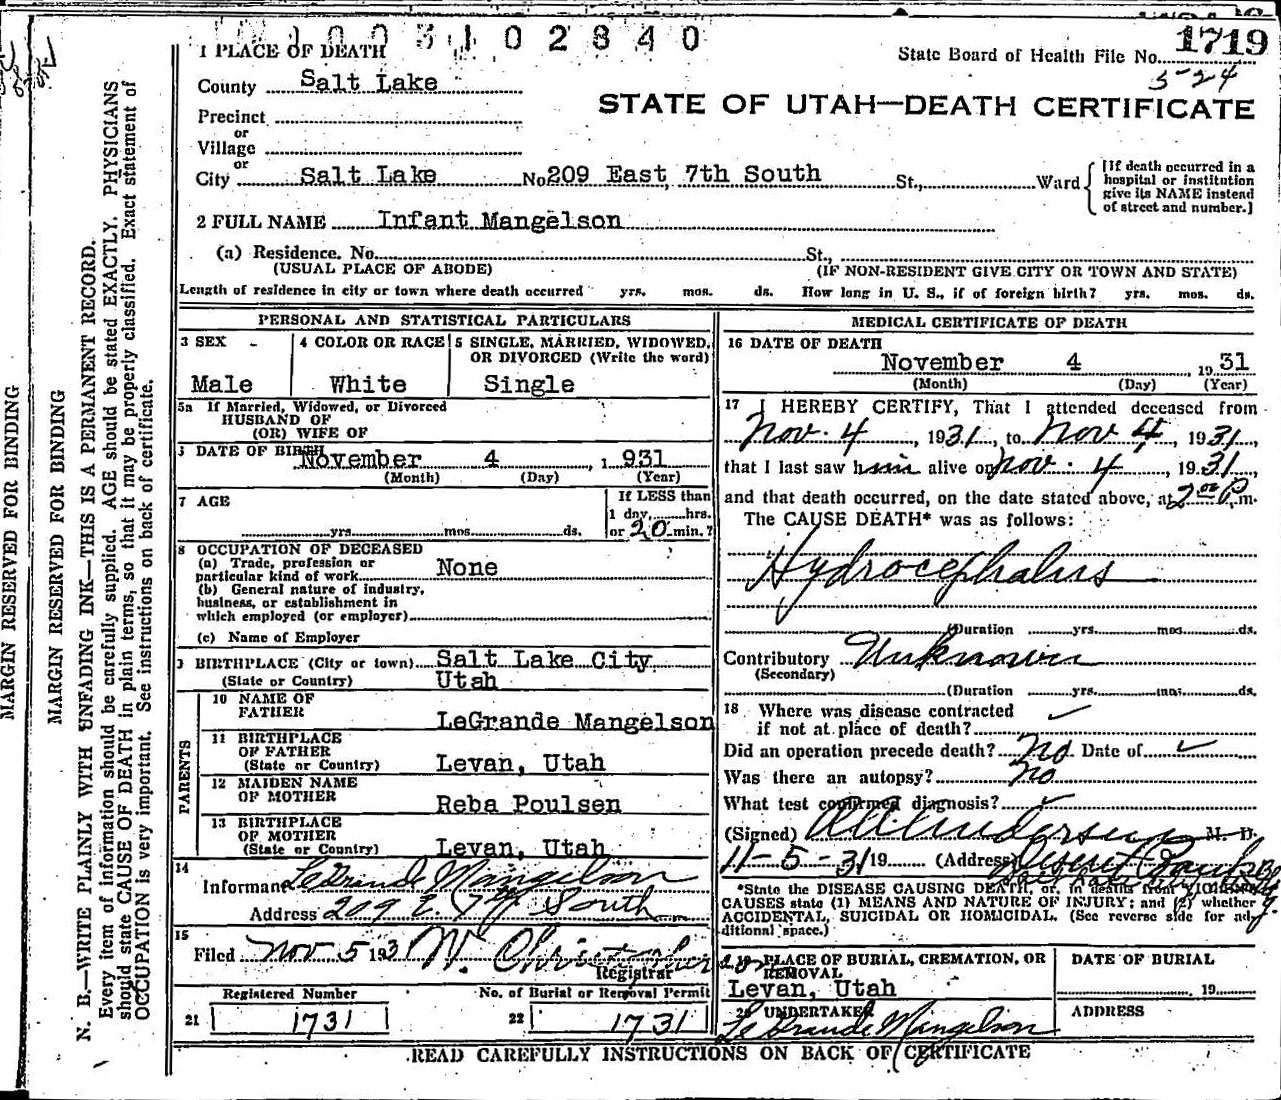 1003102840
1 PLACE OF DEATH
State Board of Health File No. 1719
5-24
County Salt Lake
STATE OF UTAH—DEATH CERTIFICATE
Precinct
or
Village
or
City Salt Lake No 209 East 7th South St., Ward
[If death occurred in a hospital or institution give its NAME instead of street and number.]
2 FULL NAME Infant Mangelson
(a) Residence. No. St.,
(USUAL PLACE OF ABODE) (IF NON-RESIDENT GIVE CITY OR TOWN AND STATE)
Length of residence in city or town where death occurred yrs. mos. ds. How long in U. S., if of foreign birth? yrs. mos. ds.
PERSONAL AND STATISTICAL PARTICULARS
3 SEX
Male
4 COLOR OR RACE
White
5 SINGLE, MARRIED, WIDOWED,
OR DIVORCED (Write the word)
Single
5a If Married, Widowed, or Divorced
HUSBAND OF
(OR) WIFE OF
DATE OF BIRTH
November 4 , 1931
(Month) (Day) (Year)
7 AGE
yrs. mos. ds.
If LESS than
1 day, hrs.
or 20 min.?
8 OCCUPATION OF DECEASED
(a) Trade, profession or
particular kind of work None
(b) General nature of industry,
business, or establishment in
which employed (or employer)
(c) Name of Employer
9 BIRTHPLACE (City or town) Salt Lake City
(State or Country) Utah
PARENTS
10 NAME OF
FATHER LeGrande Mangelson
11 BIRTHPLACE
OF FATHER
(State or Country) Levan, Utah
12 MAIDEN NAME
OF MOTHER Reba Poulsen
13 BIRTHPLACE
OF MOTHER
(State or Country) Levan, Utah
14
Informant LeGrande Mangelson
Address 209 E. 7th South
15
Filed Nov 5 1931 W. Christopherson
Registrar
Registered Number
21 1731
No. of Burial or Removal Permit
22 1731
MEDICAL CERTIFICATE OF DEATH
16 DATE OF DEATH
November 4 , 1931
(Month) (Day) (Year)
17 I HEREBY CERTIFY, That I attended deceased from
Nov. 4, 1931, to Nov 4, 1931,
that I last saw him alive on Nov. 4, 1931,
and that death occurred, on the date stated above, at 2 00 P.m.
The CAUSE DEATH* was as follows:
Hydrocephalus
(Duration yrs. mos. ds.
Contributory Unknown
(Secondary)
(Duration yrs. mos. ds.
18 Where was disease contracted
if not at place of death? ✓
Did an operation precede death? No Date of ✓
Was there an autopsy? No
What test confirmed diagnosis? ✓
(Signed) Andersen M. D.
11-5-31 19 (Address) Deseret Bank
*State the DISEASE CAUSING DEATH, or, in deaths from VIOLENT
CAUSES state (1) MEANS AND NATURE OF INJURY; and (2) whether
ACCIDENTAL, SUICIDAL OR HOMICIDAL. (See reverse side for ad-
ditional space.)
19 PLACE OF BURIAL, CREMATION, OR
REMOVAL
Levan, Utah
DATE OF BURIAL
19
20 UNDERTAKER
LeGrande Mangelson
ADDRESS
READ CAREFULLY INSTRUCTIONS ON BACK OF CERTIFICATE
MARGIN RESERVED FOR BINDING
MARGIN RESERVED FOR BINDING
N. B.—WRITE PLAINLY WITH UNFADING INK—THIS IS A PERMANENT RECORD.
Every item of information should be carefully supplied. AGE should be stated EXACTLY. PHYSICIANS
should state CAUSE OF DEATH in plain terms, so that it may be properly classified. Exact statement of
OCCUPATION is very important. See instructions on back of certificate.